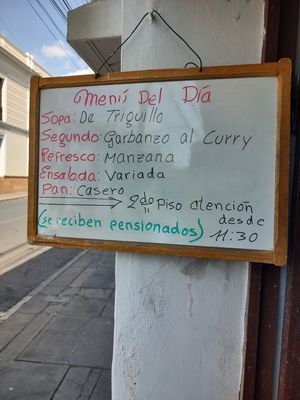 Menú Del Día
Sopa: De Triguillo
Segundo: Garbanzo al Curry
Refresco: Manzana
Ensalada: Variada
Pan: Casero
→ 2do Piso atención
desde
(se reciben pensionados) 11:30